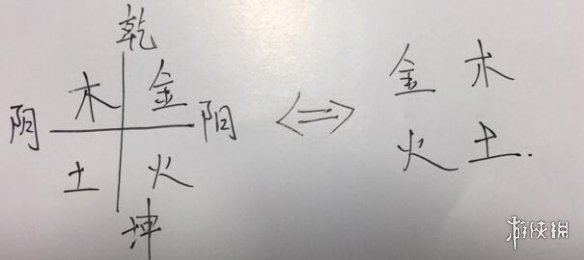 乾
木 金 金 木
阴 阳 <=>
土 火 火 土.
坤
游侠网